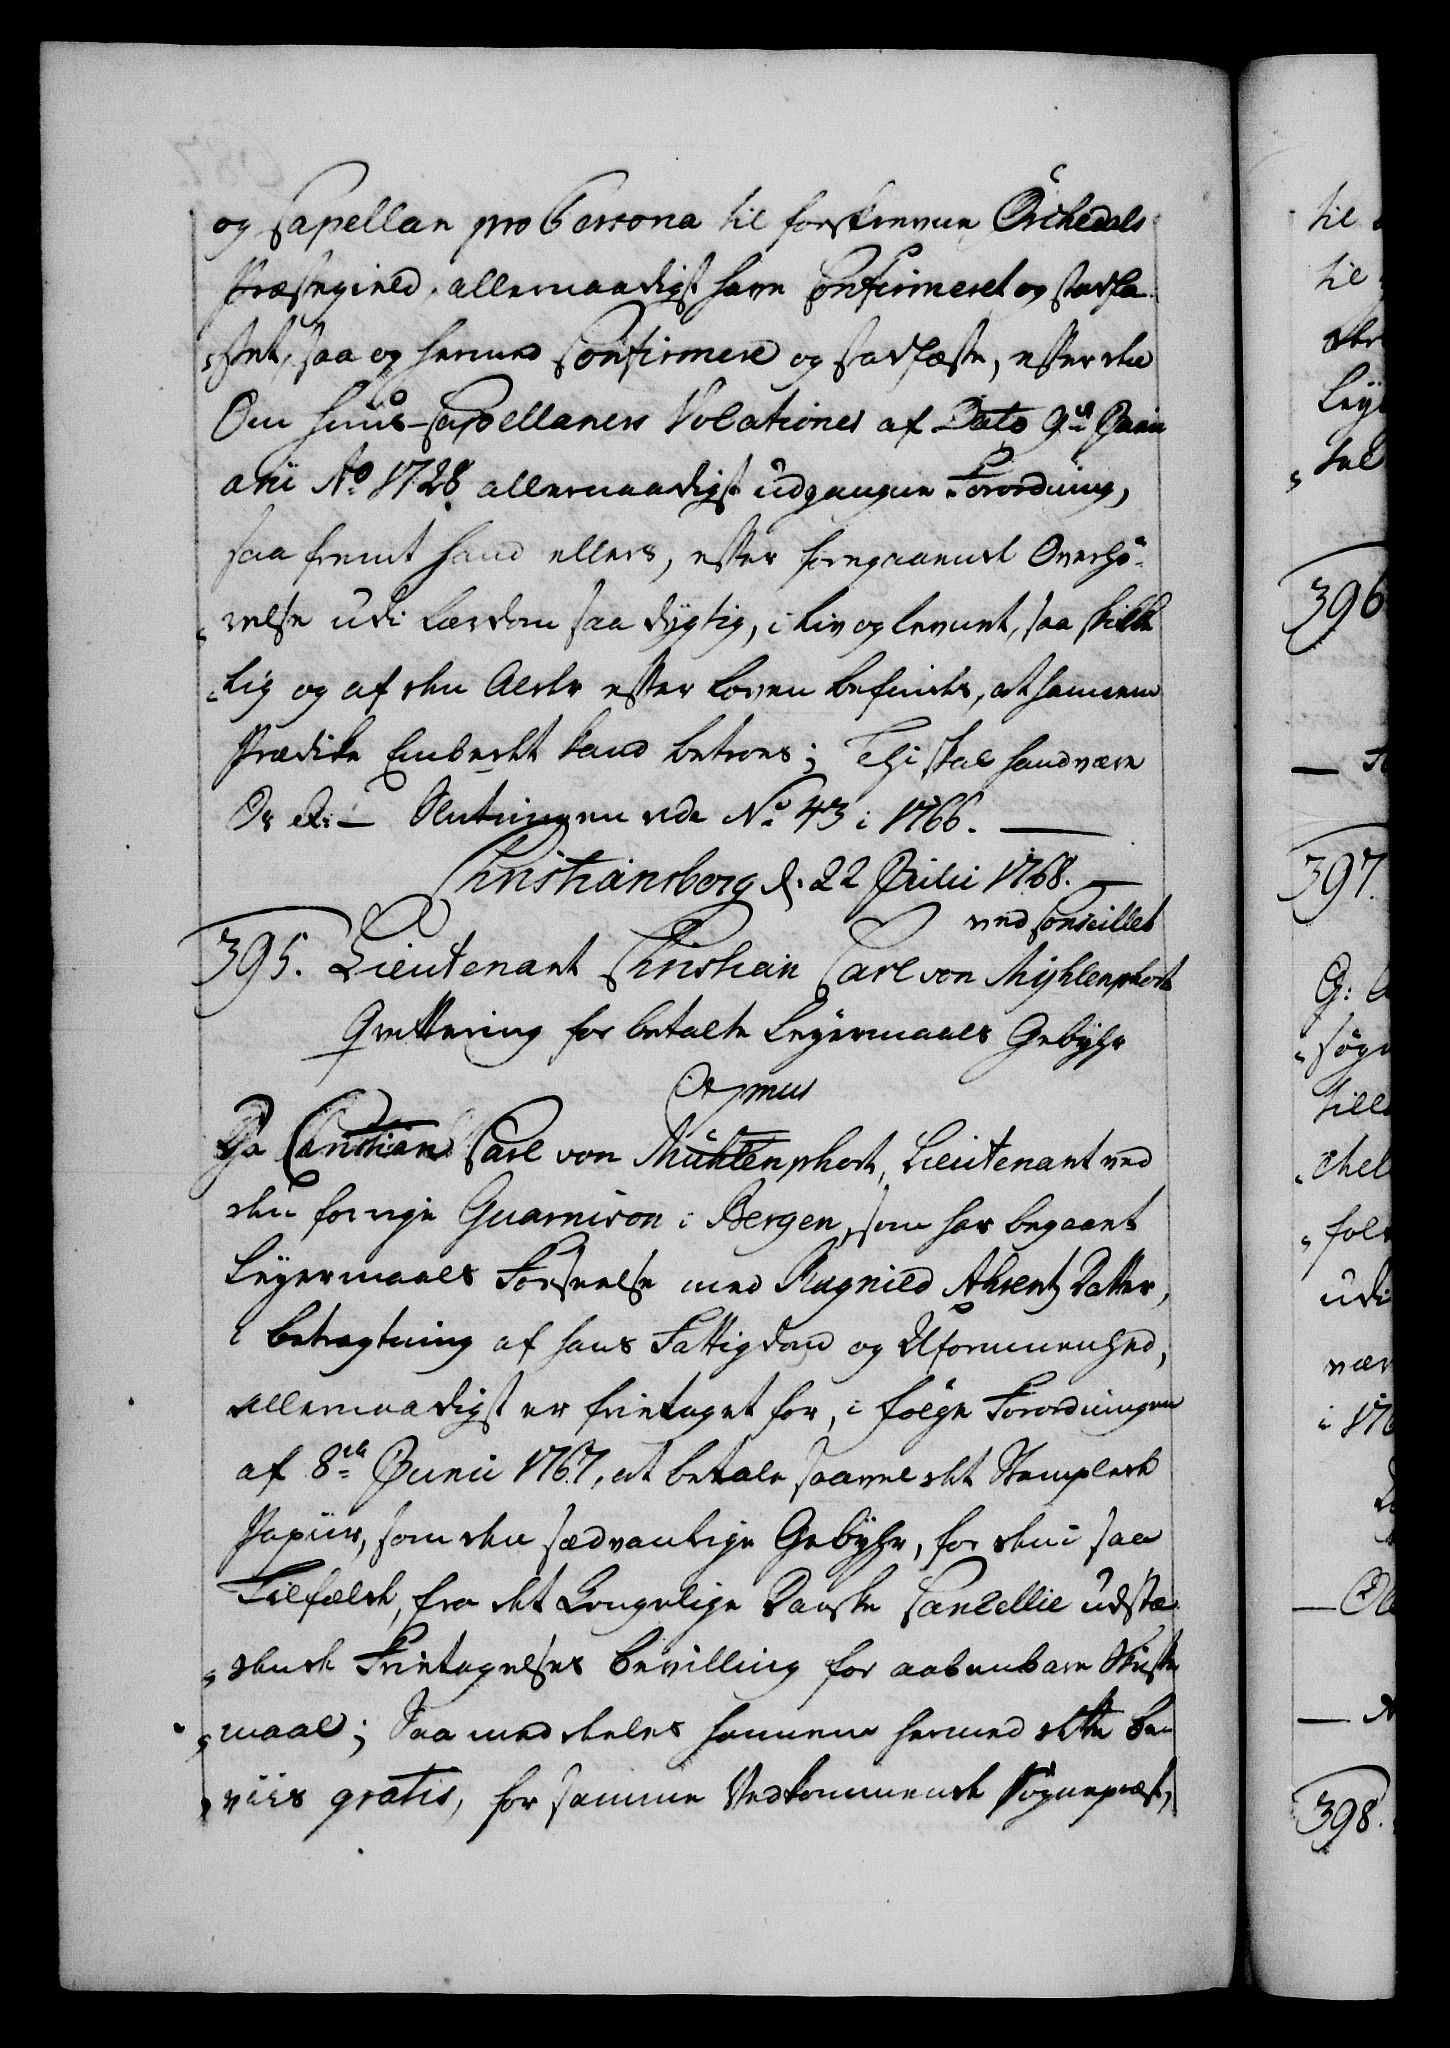 og Capellan pro Persona til forskrevne Örchedals
Præstegield, allernaadigst have Confirmeret og stadfæ-
stet, saa og hermed Confirmere og stadfæste, efter den
Om Huus-Capellaners Vocationer af Dato 9de Janu
arii Ao. 1728 allernaadigst udgangne Forordning,
saa fremt hand ellers, efter foregaaende Overhö-
relse udi Lærdom saa dygtig, i Liv og Levnet, saa skikke
lig og af den Alder efter Loven befindes, at hannem
Prædike Embedet kand betroes; Thi skal hand være
Os etc: — Slutningen vide No. 43 i 1766. —
Christiansborg d. 22 Julii 1768. —
ved Conseillet
395. Lieutenant Christian Carl von Myhlenphort
Qvittering for betalte Leyermaals Gebyhr
Op mus
Da Christian Carl von Mühlenphort, Lieutenant ved
den forrige Guarnison i Bergen, som har begaaet
Leyermaals Forseelse med Ragnild Ahrentz Datter,
i betragtning af hans Fattigdom og Uformuenhed,
allernaadigst er fritaget for, i fölge Forordningen
af 8de Junii 1767, at betale saavel det Stemplede
Papiir, som den sædvanlige Gebyhr, for den i saa
Tilfælde, fra det Kongelige Danske Cancellie udstæ
dende Fritagelses Bevilling for aabenbare Skrifte
maal; Saa meddeles hannem hermed dette Be
viis gratis, for samme Vedkommende Sognepræst,
til
til
396
397.
söge
till
udi
vær
i 176
398.